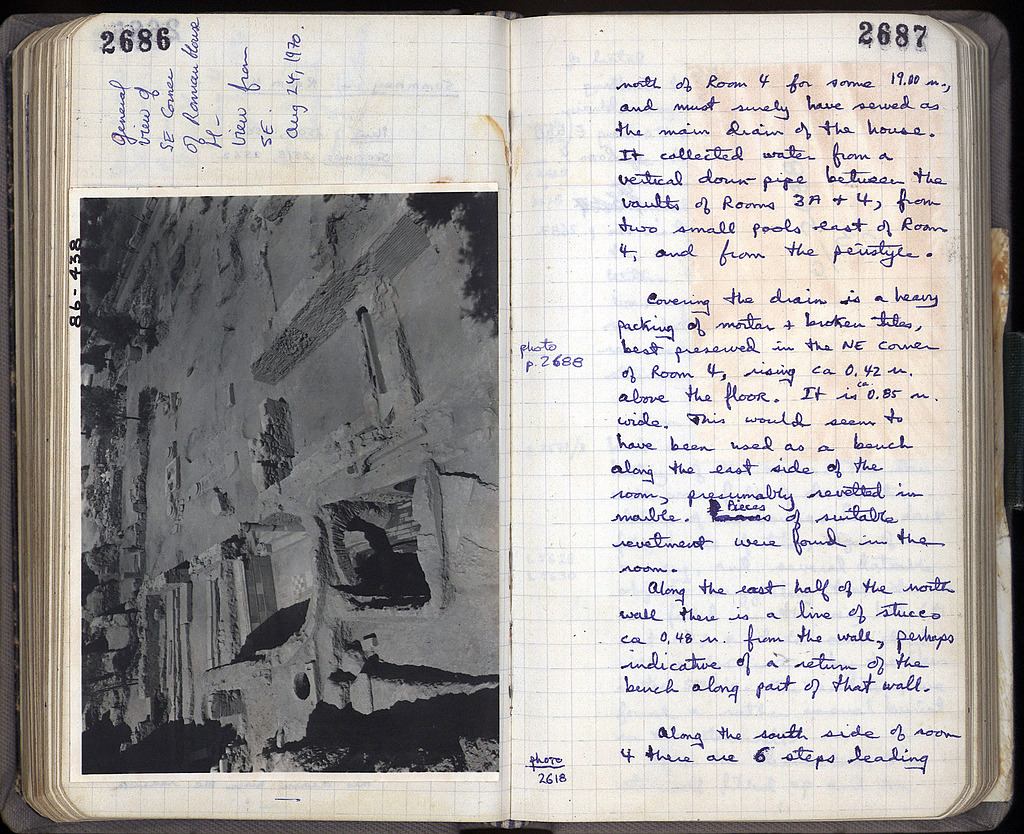 2686
General
view of
SE Corner
of Roman House
H -
View from
SE.
Aug 24, 1970.
86-438
2687
north of Room 4 for some 19.00 m.,
and must surely have served as
the main drain of the house.
It collected water from a
vertical down-pipe between the
vaults of Rooms 3A + 4, from
two small pools east of Room
4, and from the peristyle.
Covering the drain is a heavy
packing of mortar + broken tiles,
photo
p. 2688
best preserved in the NE corner
of Room 4, rising ca 0.42 m.
above the floor. It is ca. 0.85 m.
wide. This would seem to
have been used as a bench
along the east side of the
room, presumably revetted in
marble. Pieces of suitable
revetment were found in the
room.
Along the east half of the north
wall there is a line of stucco
ca 0.48 m. from the wall, perhaps
indicative of a return of the
bench along part of that wall.
Along the south side of room
photo
2618
4 there are 6 steps leading